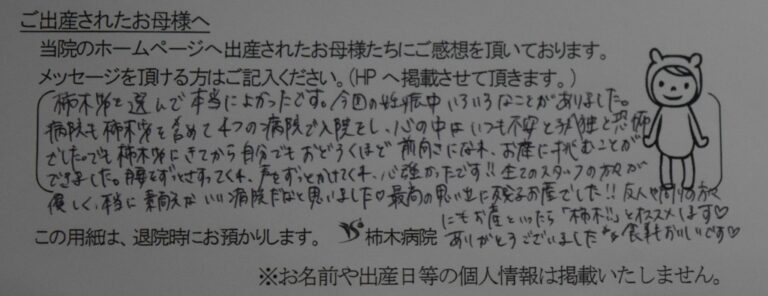 ご出産されたお母様へ
当院のホームページへ出産されたお母様たちにご感想を頂いております。
メッセージを頂ける方はご記入ください。(HPへ掲載させて頂きます。)
柿木等を選んで本当によかったです。今回の妊娠中いろいろなことがありました。
病院も柿木等を含めて4つの病院で入院をし、心の中はいつも不安と孤独と恐怖
でした。でも柿木等にきてから自分でもおどろくほど前向きになれ、お産に挑むことが
できました。腰をずっとさすってくれ、声をずっとかけてくれ、心強かったです!!全てのスタッフの方々が
優しく、本当に素敵ないい病院だなと思いました♡最高の思い出に残るお産でした!!友人や周りの方々
にもお産といったら「柿木!!」とオススメします♡
この用紙は、退院時にお預かりします。 柿木病院 ありがとうございました 食事もおいしいです♡
※お名前や出産日等の個人情報は掲載いたしません。